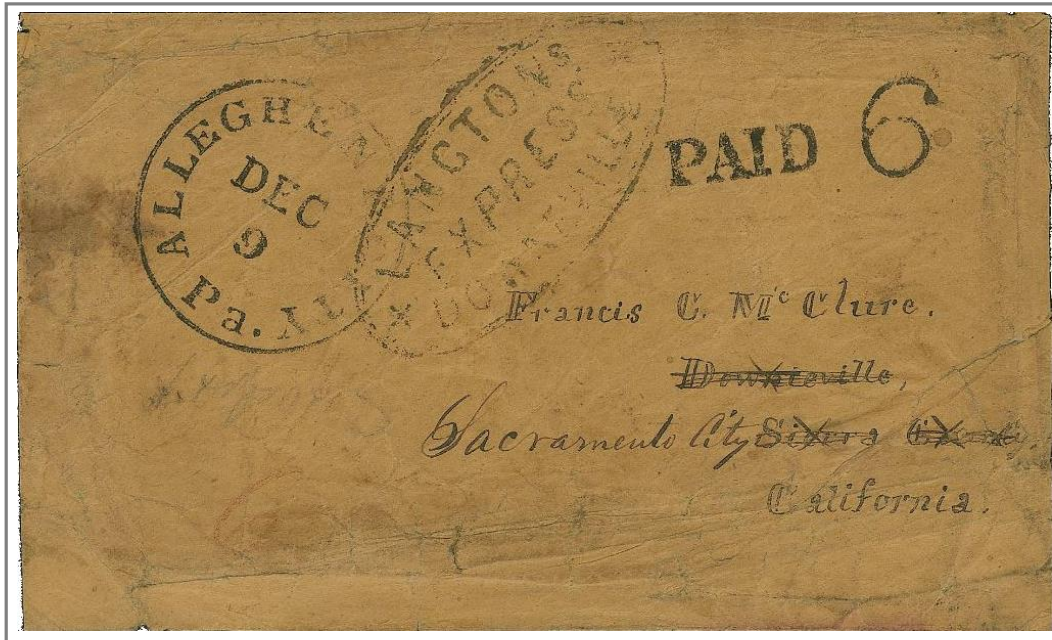 ALLEGHENY CITY Pa.
DEC
9
LANGTONS
EXPRESS
DOWNIEVILLE
PAID 6
Francis C. Mc Clure.
Downieville,
Sacramento City Sierra County,
California.